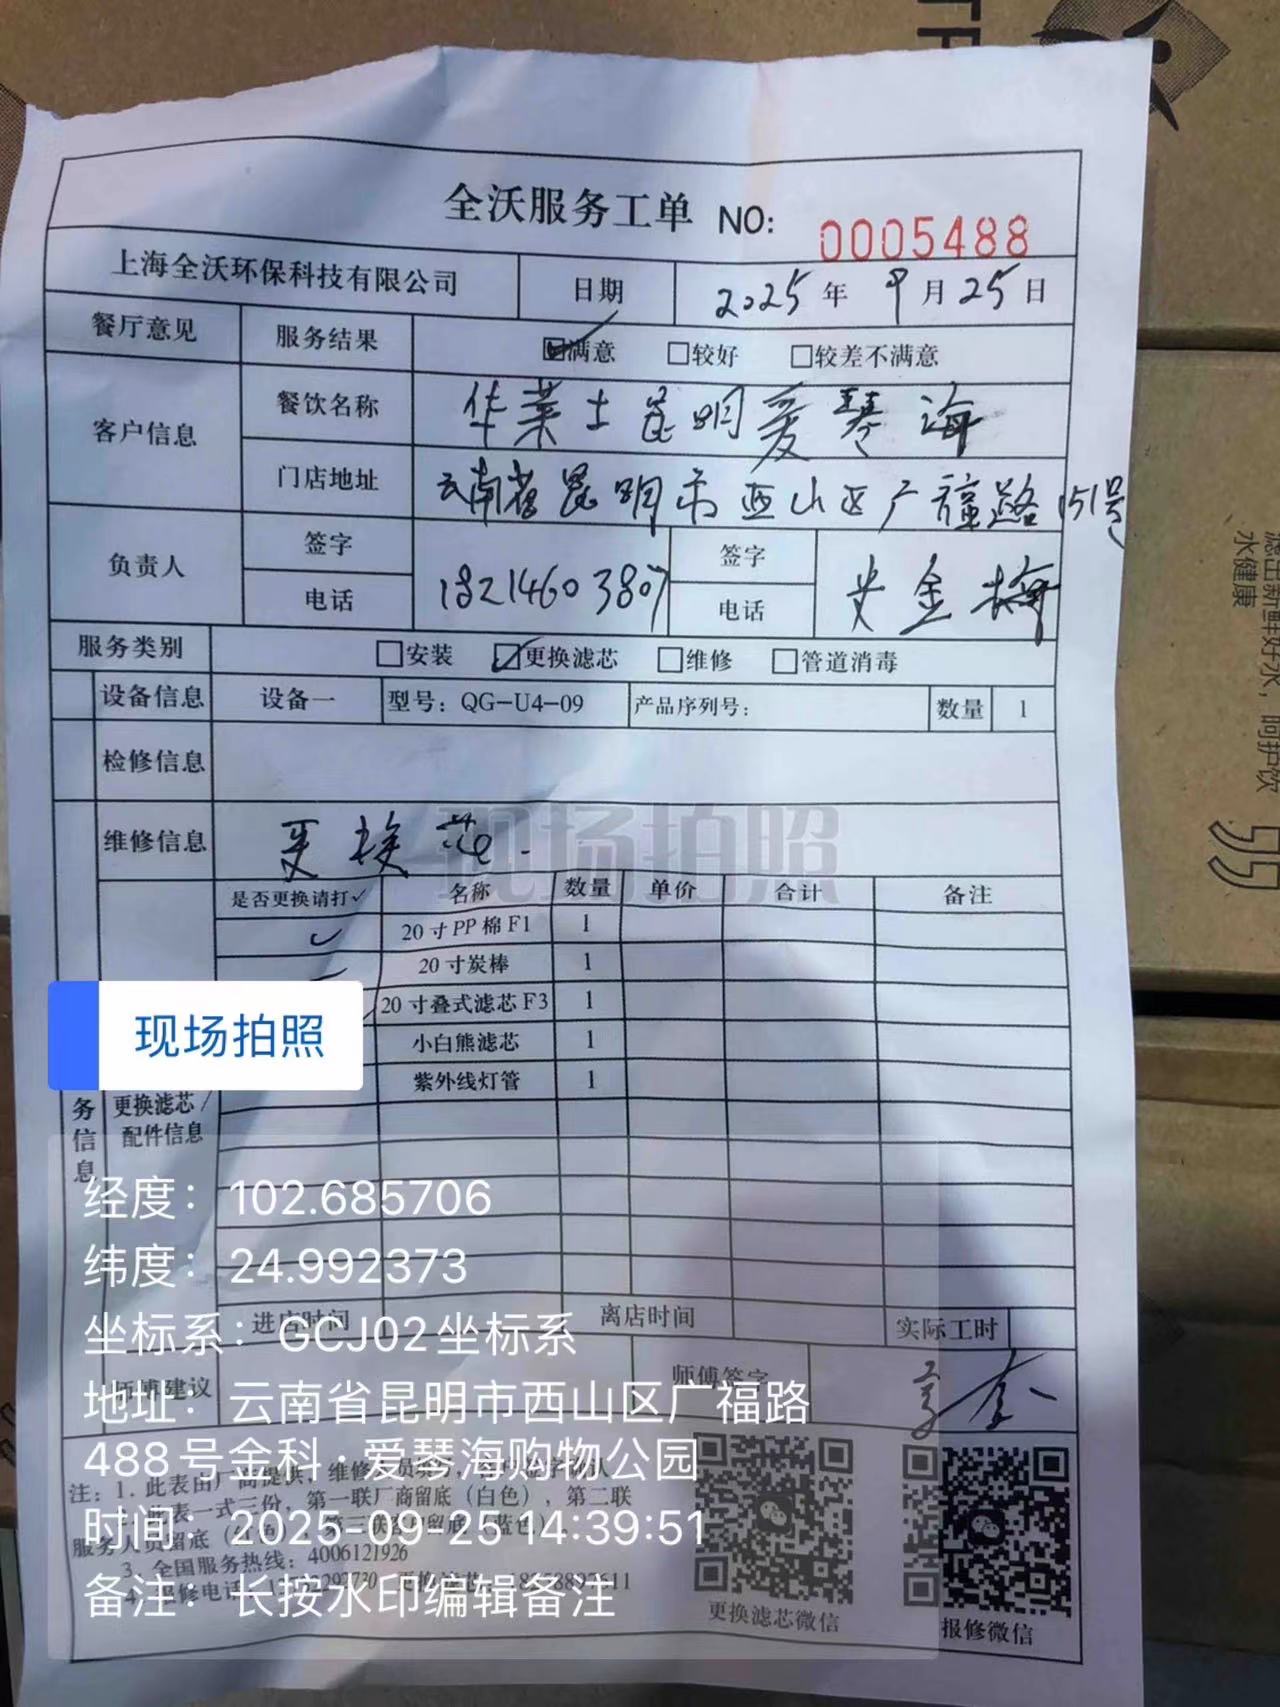 全沃服务工单 NO: 0005488
上海全沃环保科技有限公司 日期 2025年9月25日
餐厅意见 服务结果 满意 较好 较差不满意
客户信息 餐饮名称 华莱士昆明爱琴海
门店地址 云南省昆明市西山区广福路151号
负责人 签字 签字
电话 18214603807 电话 金梅
服务类别 安装 更换滤芯 维修 管道消毒
设备信息 设备一 型号：QG-U4-09 产品序列号： 数量 1
检修信息
维修信息 更换芯
现场拍照
是否更换请打✓ 名称 数量 单价 合计 备注
✓ 20寸PP棉F1 1
20寸炭棒 1
20寸叠式滤芯F3 1
现场拍照
小白熊滤芯 1
紫外线灯管 1
务信息
更换滤芯/
配件信息
经度：102.685706
纬度：24.992373
进店时间 离店时间 实际工时
坐标系：GCJ02坐标系
师傅建议 师傅签字
地址：云南省昆明市西山区广福路
488号金科·爱琴海购物公园
注：1. 此表由厂商提供，维修
此表一式三份，第一联厂商留底（白色），第二联
时间：2025-09-25 14:39:51
服务人员留底 第三联 留底（蓝色）
3、全国服务热线：4006121926
备注：长按水印编辑备注
更换滤芯微信 报修微信
水健康
滤出新鲜好水，呵护饮